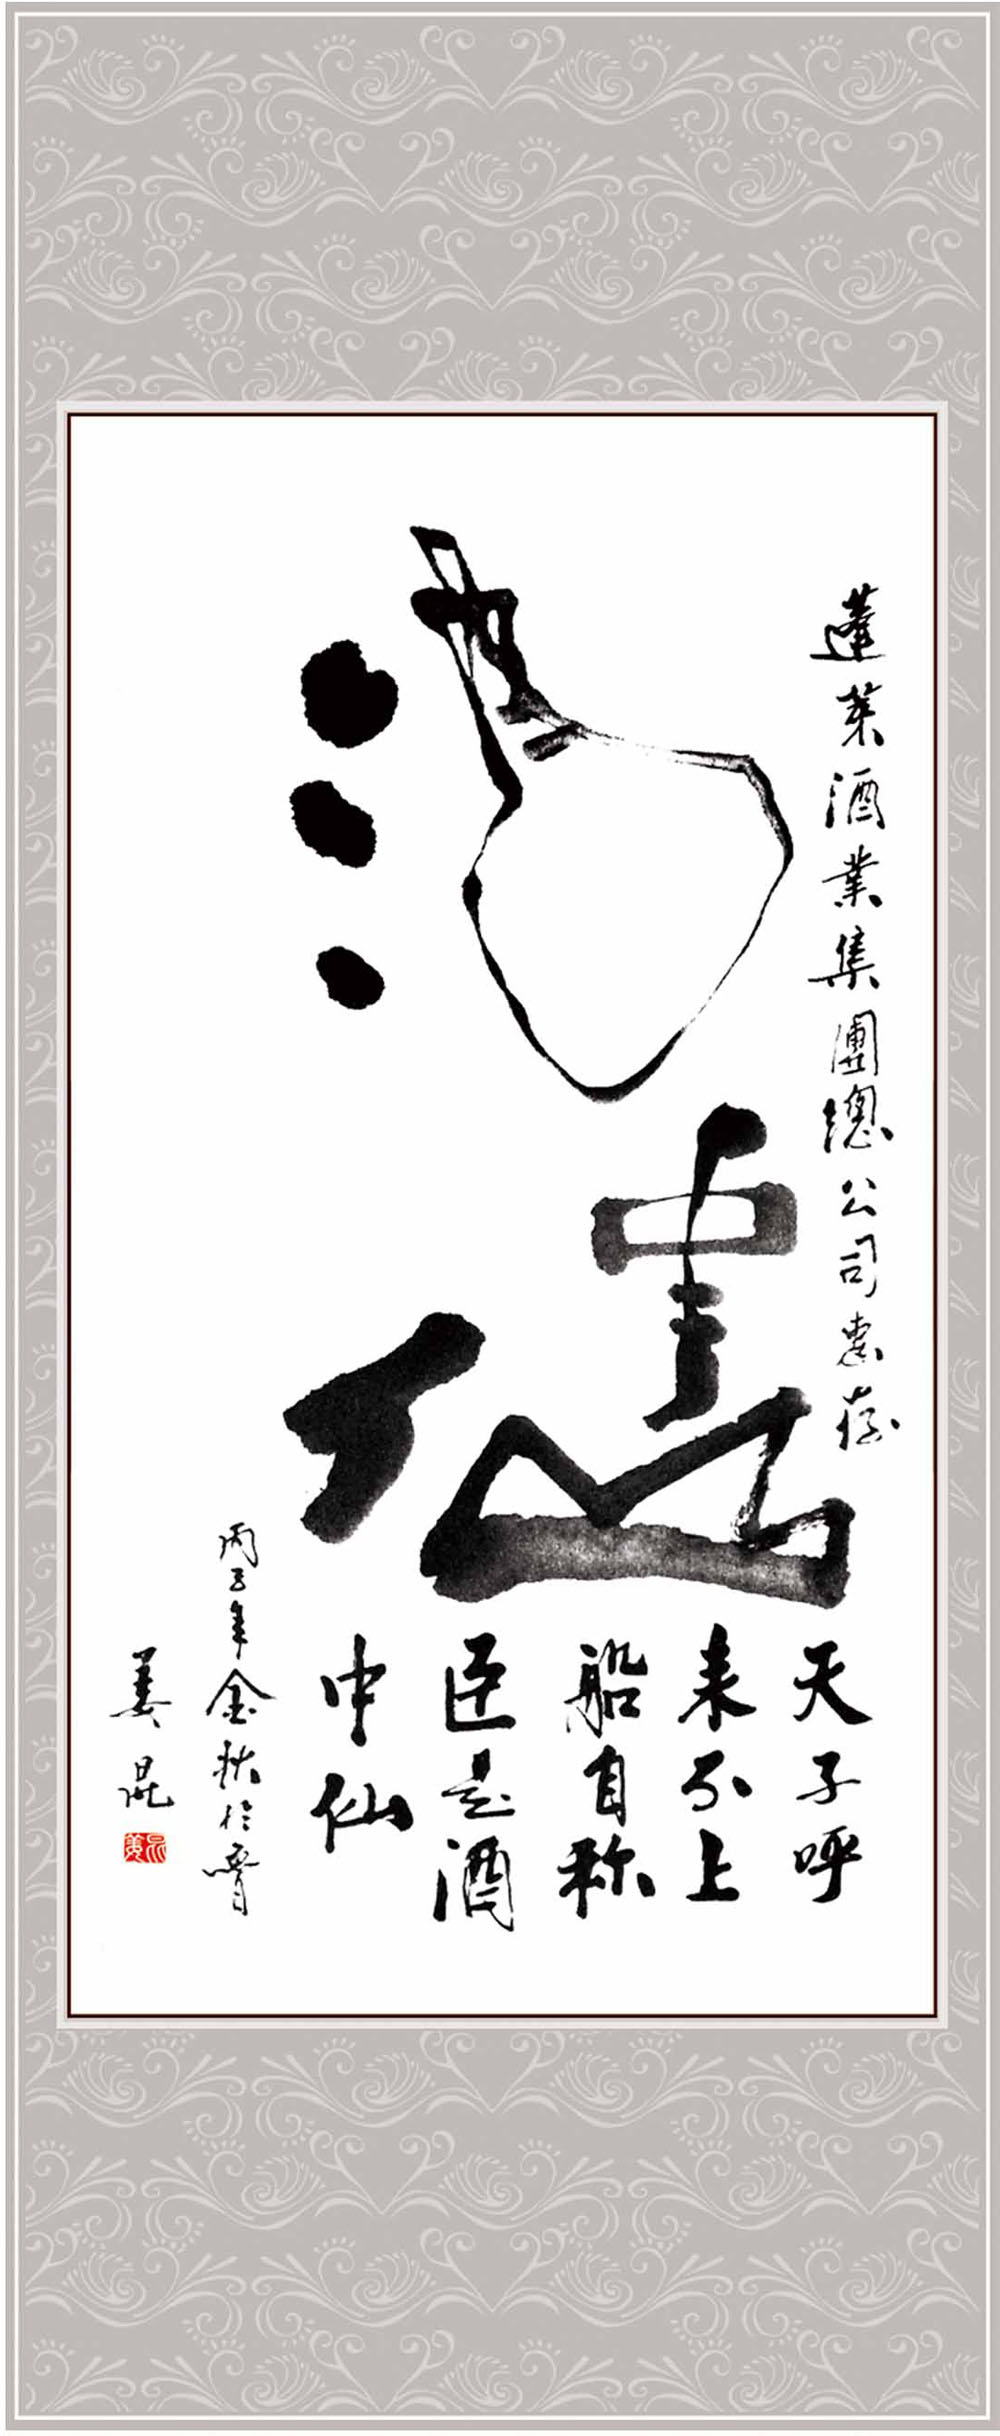 蓬莱酒業集團總公司惠存
酒中仙
天子呼
来不上
船自称
臣是酒
中仙
丙子年金秋於
姜昆
姜昆